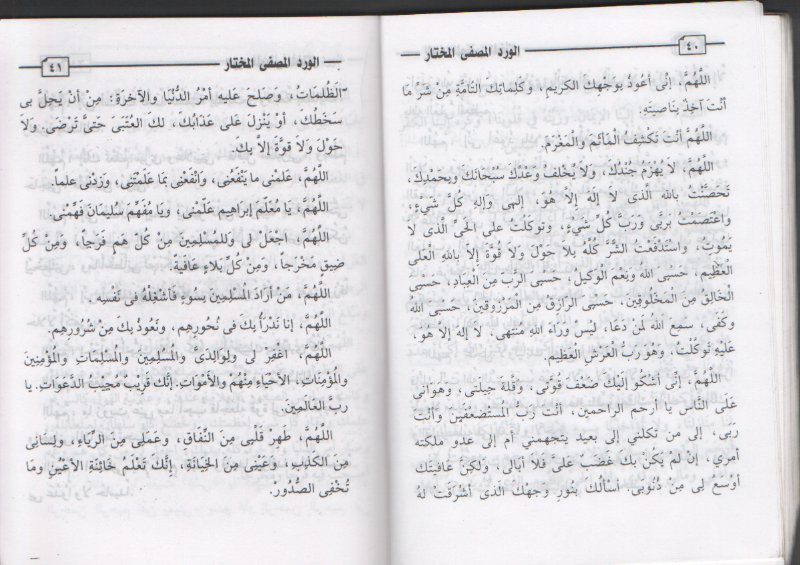 ٤٠ الورد المصفى المختار
اللَّهُمَّ، إنِّى أعُوذُ بوَجْهِكَ الكريم، وَكَلِمَاتِكَ التَّامَّةِ مِن شَرِّ مَا
أنْتَ آخِذٌ بنَاصِيَتِهِ.
اللَّهُمَّ أنْتَ تَكْشِفُ المَأثَمَ وَالمَغْرَمَ.
اللَّهُمَّ، لاَ يُهْزَمُ جُنْدُكَ، وَلاَ يُخْلَفُ وَعْدُكَ سُبْحَانَكَ وَبحَمْدِكَ.
تَحَصَّنْتُ بالله الَّذى لاَ إلَهَ إلاَّ هُوَ، إلهى وَإله كُلِّ شَيْءٍ،
وَاعْتَصَمْتُ برَبِّى وَرَبِّ كُلِّ شَيْءٍ، وَتَوكَلْتُ عَلى الحَيِّ الَّذى لاَ
يَمُوتُ، وَاسْتَدْفَعْتُ الشَّرَّ كُلَّهُ بلاَ حَوْلَ وَلاَ قُوةَ إلاَّ بالله العَلى
العَظِيم، حَسْبى الله وَنِعْمَ الْوَكِيلُ، حَسبِى الرَّبُّ مِنَ العِبَادِ، حَسْبى
الْخَالِقُ مِنَ المَخْلُوقِينَ، حَسْبَى الرَّازِقُ مِنَ المَرْزُوقِينَ، حَسْبى الله
وَكَفَى، سَمِعَ الله لَمنْ دَعَا، لَيْسَ وَرَاءَ الله مُنْتَهى، لاَ إلهَ إلاَّ هُوَ،
عَلَيْهِ تَوكَّلْتُ، وَهُوَ رَبُّ العَرْشِ العَظِيمِ.
اللَّهُمَّ، إنِّى أشْكُو إلَيْكَ ضَعْفَ قُوَّتى، وَقْلةَ حِيلَتى، وَهَوانى
عَلَى النَّاس يا أرحم الراحمين، أنْتَ رَبُّ المُسْتَضْعَفِينَ وَأنْتَ
رَبّى، إلى مَن تكلنى إلى بعيد يتجهمنى أم إلى عدو ملكته
أمري، إنْ لَمْ يَكُنْ بكَ غَضَبٌ عَلىَّ فَلاَ أبَالى، وَلَكِنَّ عَافِيَتَكَ
أوْسَعُ لِى مِنْ ذُنُوبى. أسْألُكَ بنُورِ وَجْهِكَ الَّذى أشْرَقَتْ لَهُ
الورد المصفى المختار ٤١
الظُلمَاتُ، وَصَلحَ عَليه أمْرُ الدُّنْيَا والآخرَةِ: مِنْ أنْ يَحِلَّ بى
سَخَطُكَ، أوْ يَنْزِلَ عَلى عَذَابُكَ، لَكَ العُتْبَى حَتىَّ تَرْضَى. وَلاَ
حَوْلَ وَلاَ قوَّةَ إلاَّ بكَ.
اللَّهُمَّ، عَلمْنى ما يَنْفَعُنى، وَانْفَعْنى بمَا عَلَّمْتَنى، وَزدْنى علماً.
اللَّهُمَّ، يا مُعَلِّمَ إبراهيم عَلِّمْنى، ويَا مُفَهِّمَ سُلَيمانَ فَهِّمْنى.
اللَّهُمَّ، اجْعَلْ لى وَللمُسْلِمِينَ مِنْ كُلِّ هَمٍ فَرَجاً، وَمِنْ كُلِّ
ضِيقٍ مَخْرَجاً، وَمِنْ كُلِّ بَلاءٍ عافية.
اللَّهُمَّ، مَنْ أرَادَ المُسْلِمِينَ بسُوءٍ فَأشْغِلْهُ فى نَفْسِه.
اللَّهُمَّ، إنا نَدْرَأُ بكَ فى نُحُورِهِم، وَنَعُوذُ بكَ مِنْ شُرُورِهِم.
اللَّهُمَّ، اغْفر لى وَلِوالِدَىَّ وَالمُسْلِمِينَ وَالمُسْلِمَاتِ وَالمُؤْمِنينَ
وَالمُؤْمِنَاتِ، الأحْيَاءِ مِنْهُمْ وَالأمْوَاتِ. إنَّكَ قَريْبٌ مُجيْبُ الدَّعَواتِ. يا
ربَّ العَالَمِينَ.
اللَّهُمَّ، طَهِّرْ قَلْبى مِنَ النِّفَاق، وَعَمَلِى مِنَ الرِّيَاءِ، وَلِسَانِى
مِنَ الكَذِبِ، وَعَيْنِى مِنَ الخِيَانَةِ، إنَّكَ تَعْلَمُ خَائِنَةَ الأعْيُنِ وَمَا
تُخْفِى الصُّدُورُ.